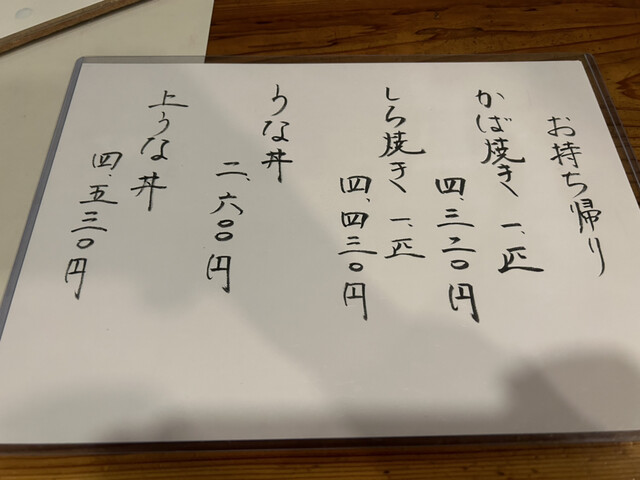 お持ち帰り
かば焼き 一、匹
四、三二〇円
しら焼き 一、匹
四、四三〇円
うな丼
二、六〇〇円
上うな丼
四、五三〇円